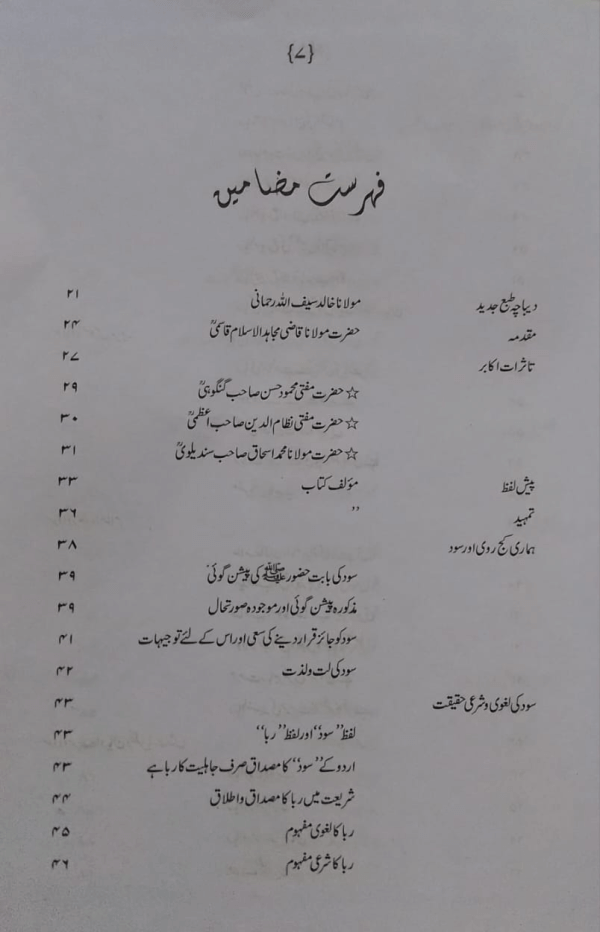 {۷}
فہرست مضامین
دیباچہ طبع جدید مولانا خالد سیف اللہ رحمانی ۲۱
مقدمہ حضرت مولانا قاضی مجاہد الاسلام قاسمیؒ ۲۴
تاثرات اکابر ۲۷
☆ حضرت مفتی محمود حسن صاحب گنگوہیؒ ۲۹
☆ حضرت مفتی نظام الدین صاحب اعظمیؒ ۳۰
☆ حضرت مولانا محمد اسحاق صاحب سندیلویؒ ۳۱
پیش لفظ مؤلف کتاب ۳۳
تمہید ,, ۳۶
ہماری کج روی اور سود ۳۸
سود کی بابت حضور ﷺ کی پیشن گوئی ۳۹
مذکورہ پیشن گوئی اور موجودہ صورتحال ۳۹
سود کو جائز قرار دینے کی سعی اور اس کے لئے توجیہات ۴۱
سود کی لت ولذت ۴۲
سود کی لغوی وشرعی حقیقت ۴۳
لفظ ”سود“ اور لفظ ”ربا“ ۴۳
اردو کے ”سود“ کا مصداق صرف جاہلیت کا ربا ہے ۴۳
شریعت میں ربا کا مصداق واطلاق ۴۴
ربا کا لغوی مفہوم ۴۵
ربا کا شرعی مفہوم ۴۶